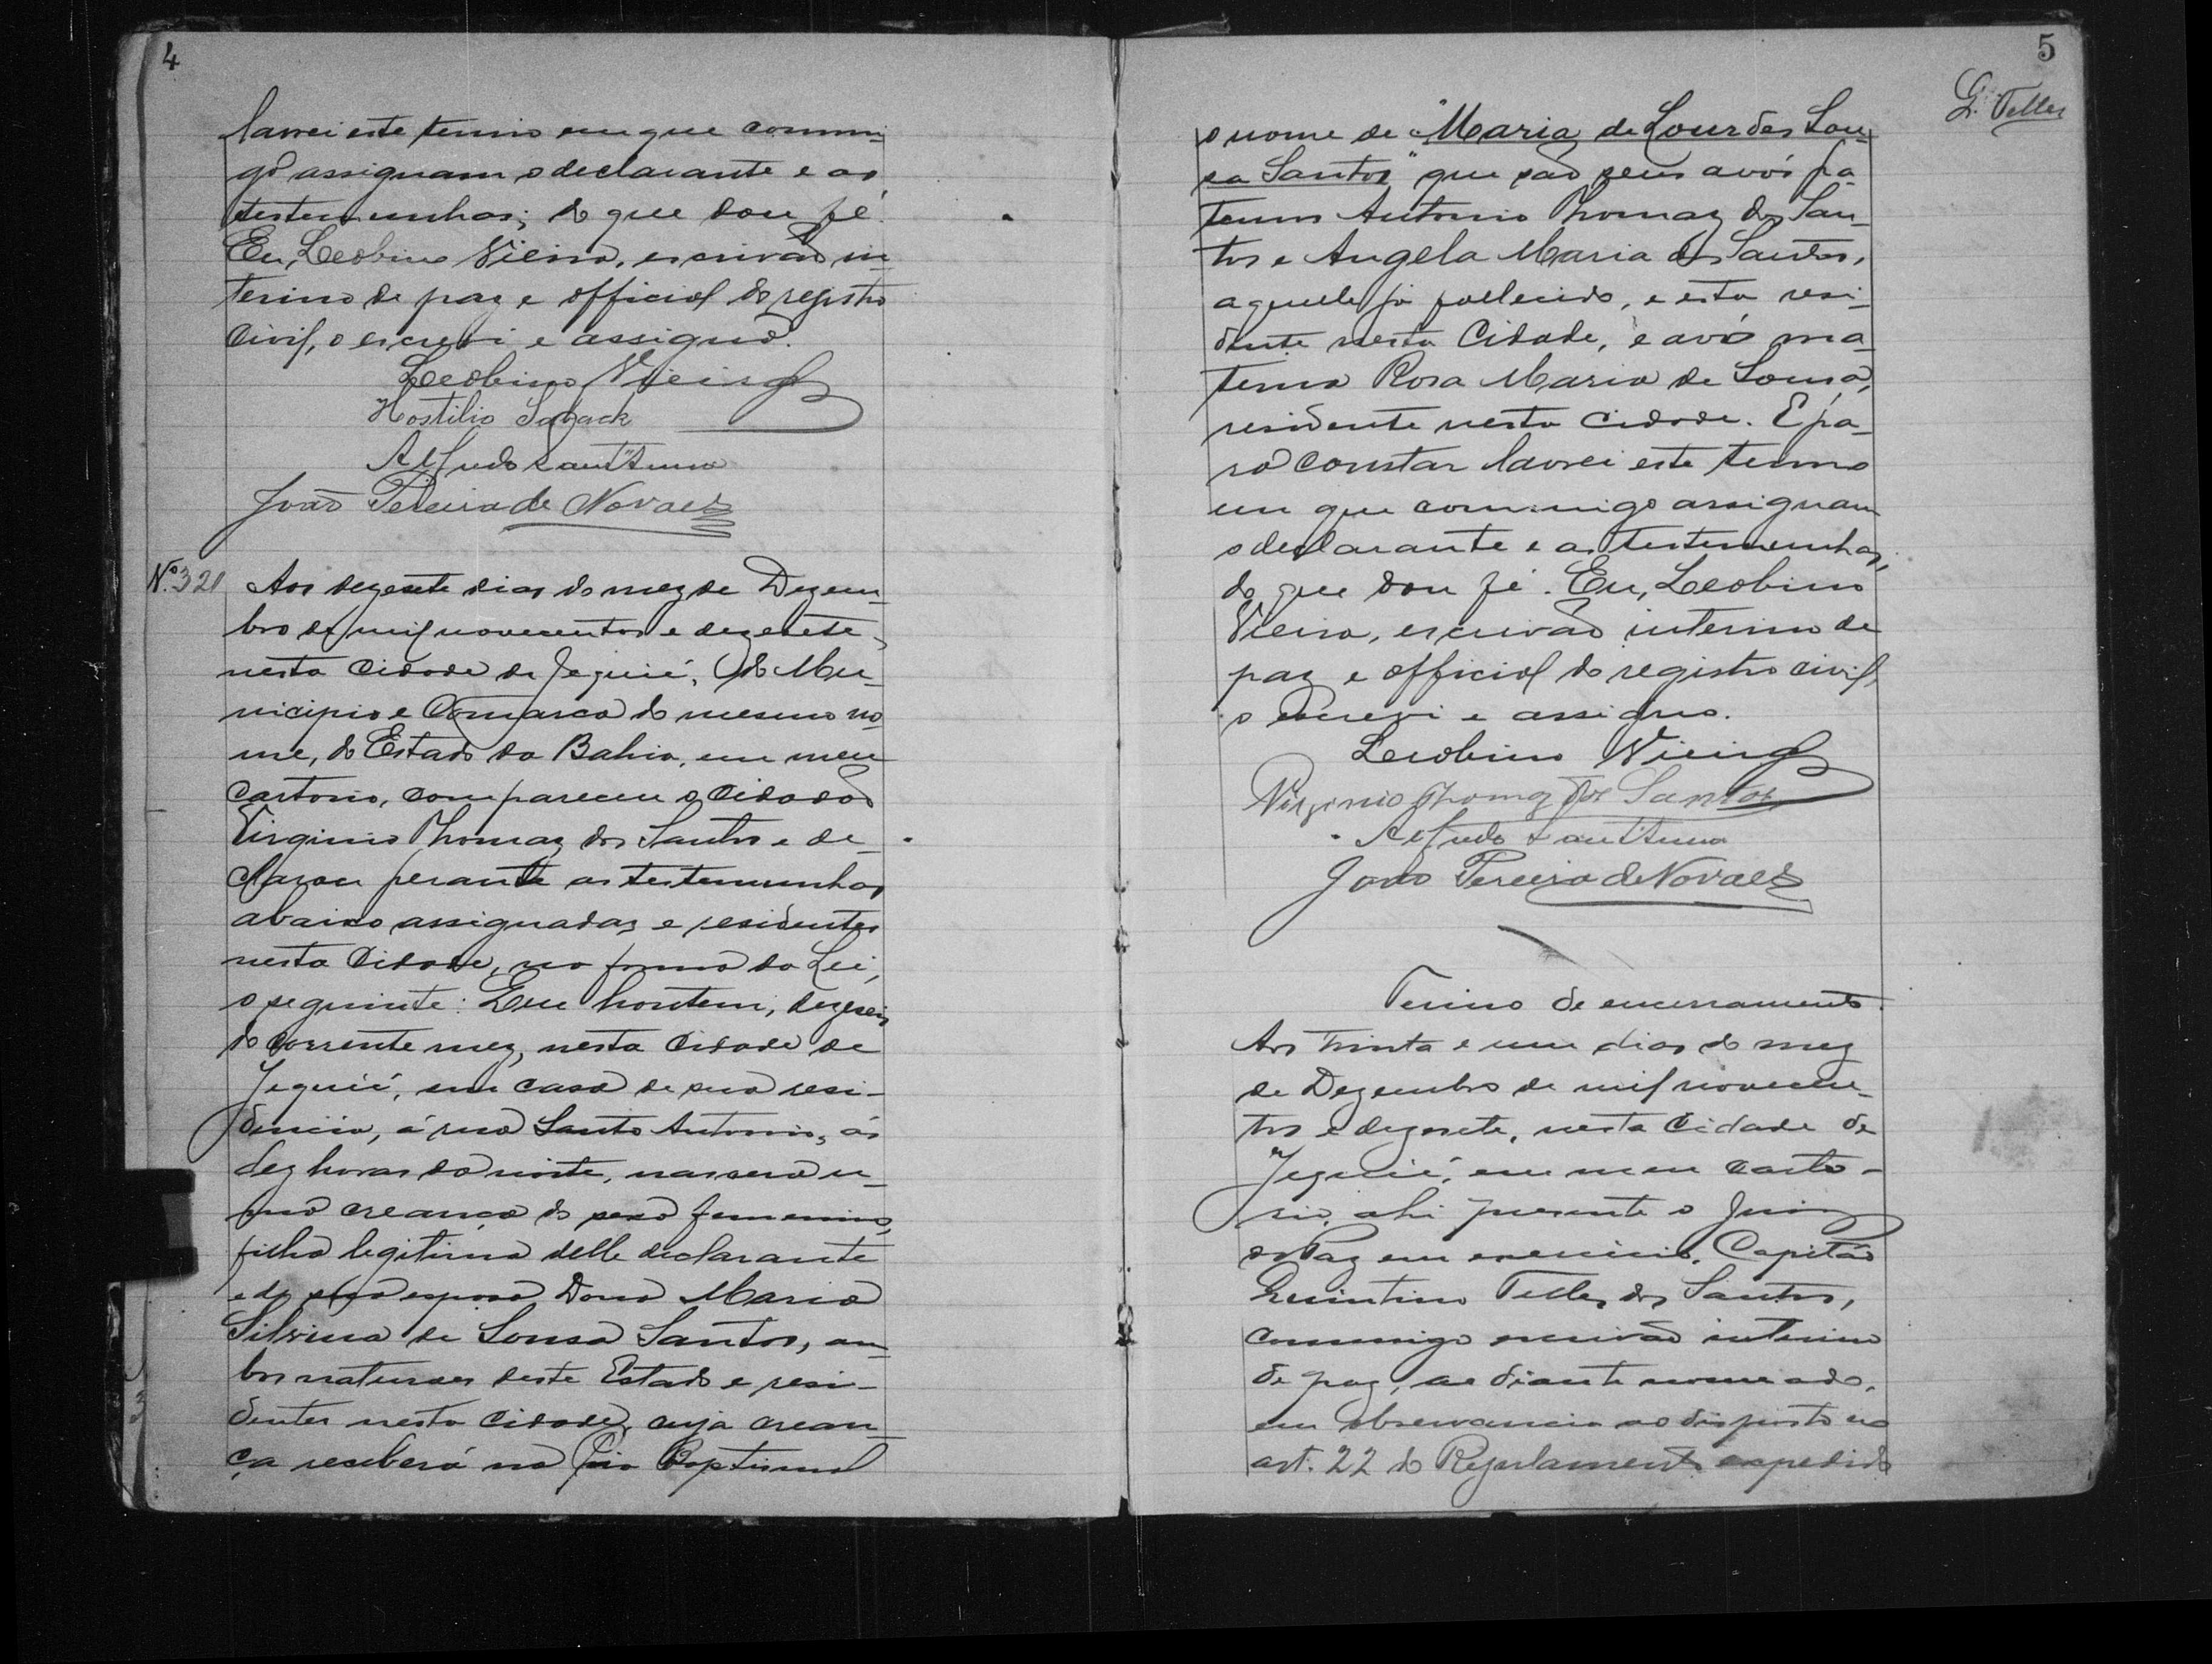 4
lavrei este termo em que commi-
go assignam o declarante e as
testemunhas; do que dou fé.
Eu, Leobino Vieira, escrivão in-
terino de paz e official do registro
Civil, o escrevi e assigno.
Leobino Vieira
Hostilio Saback
Alfredo Sant'Anna
João Pereira de Novaes
Nº 321 Aos dezesete dias do mez de Dezem-
bro de mil novecentos e dezesete,
nesta Cidade de Jequié, do Mu-
nicipio e Comarca do mesmo no-
me, do Estado da Bahia, em meu
Cartorio, compareceu o Cidadão
Virginio Thomaz dos Santos e de-
clarou perante as testemunhas
abaixo assignadas e residentes
nesta Cidade, na forma da Lei,
o seguinte: Que hontem, dezeseis
do corrente mez, nesta Cidade de
Jequié, em casa de sua resi-
dencia, á rua Santo Antonio, ás
dez horas da noite, nascera u-
ma creança do sexo femenino,
filha legitima delle declarante
e de sua esposa Dona Maria
Silvina de Sousa Santos, am-
bos naturaes deste Estado e resi-
dentes nesta Cidade, cuja crean-
ça receberá na Pia Baptismal
5
G. Telles
o nome de "Maria de Lourdes Sou-
sa Santos" que são seus avós pa-
ternos Antonio Thomaz dos San-
tos e Angela Maria dos Santos,
aquelle já fallecido, e esta resi-
dente nesta Cidade, e avó ma-
terna Rosa Maria de Sousa,
residente nesta Cidade. E pa-
ra constar lavrei este termo
em que commigo assignam
o declarante e as testemunhas,
do que dou fé. Eu, Leobino
Vieira, escrivão interino de
paz e official do registro civil,
o escrevi e assigno.
Leobino Vieira
Virginio Thomaz dos Santos
Alfredo Sant'Anna
João Pereira de Novaes
Termo de encerramento.
Aos trinta e um dias do mez
de Dezembro de mil novecen-
tos e dezesete, nesta Cidade de
Jequié, em meu carto-
rio, ahi presente o Juiz
de Paz em exercicio, Capitão
Quintino Telles dos Santos,
commigo escrivão interino
de paz, ao diante nomeado,
em observancia ao disposto no
art. 22 do Regulamento expedido